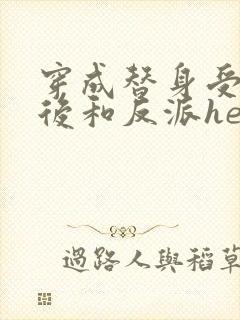 穿成替身受
後和反派he
過路人與稻草